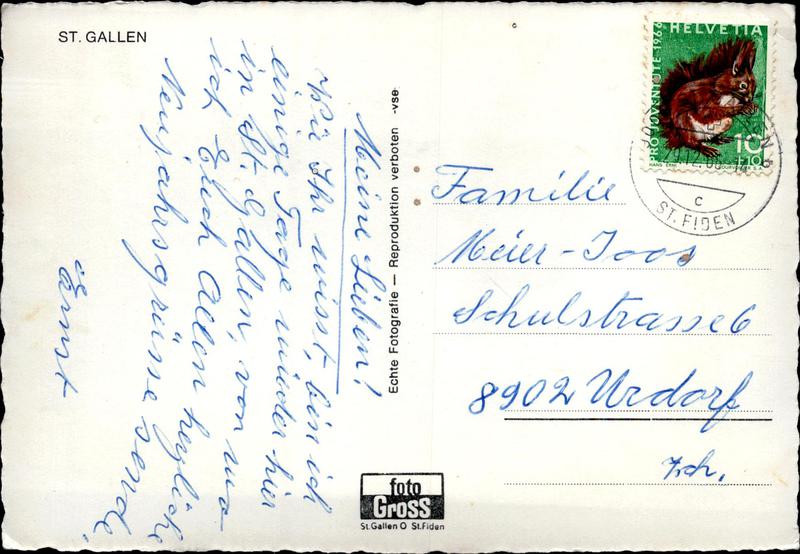 ST. GALLEN
Meine Lieben!
Wie Ihr wisst, bin ich
einige Tage wieder hier
in St. Gallen, von wo
ich Euch Allen herzliche
Neujahrsgrüsse sende!
Ernst
Echte Fotografie — Reproduktion verboten -vse-
foto
Gross
St.Gallen O St.Fiden
HELVETIA
PRO JUVENTUTE 1966
10
+10
HANS ERNI
COURVOISIER S.A.
C
ST. FIDEN
Familie
Meier-Joos
Schulstrasse 6
8902 Urdorf
Zch.